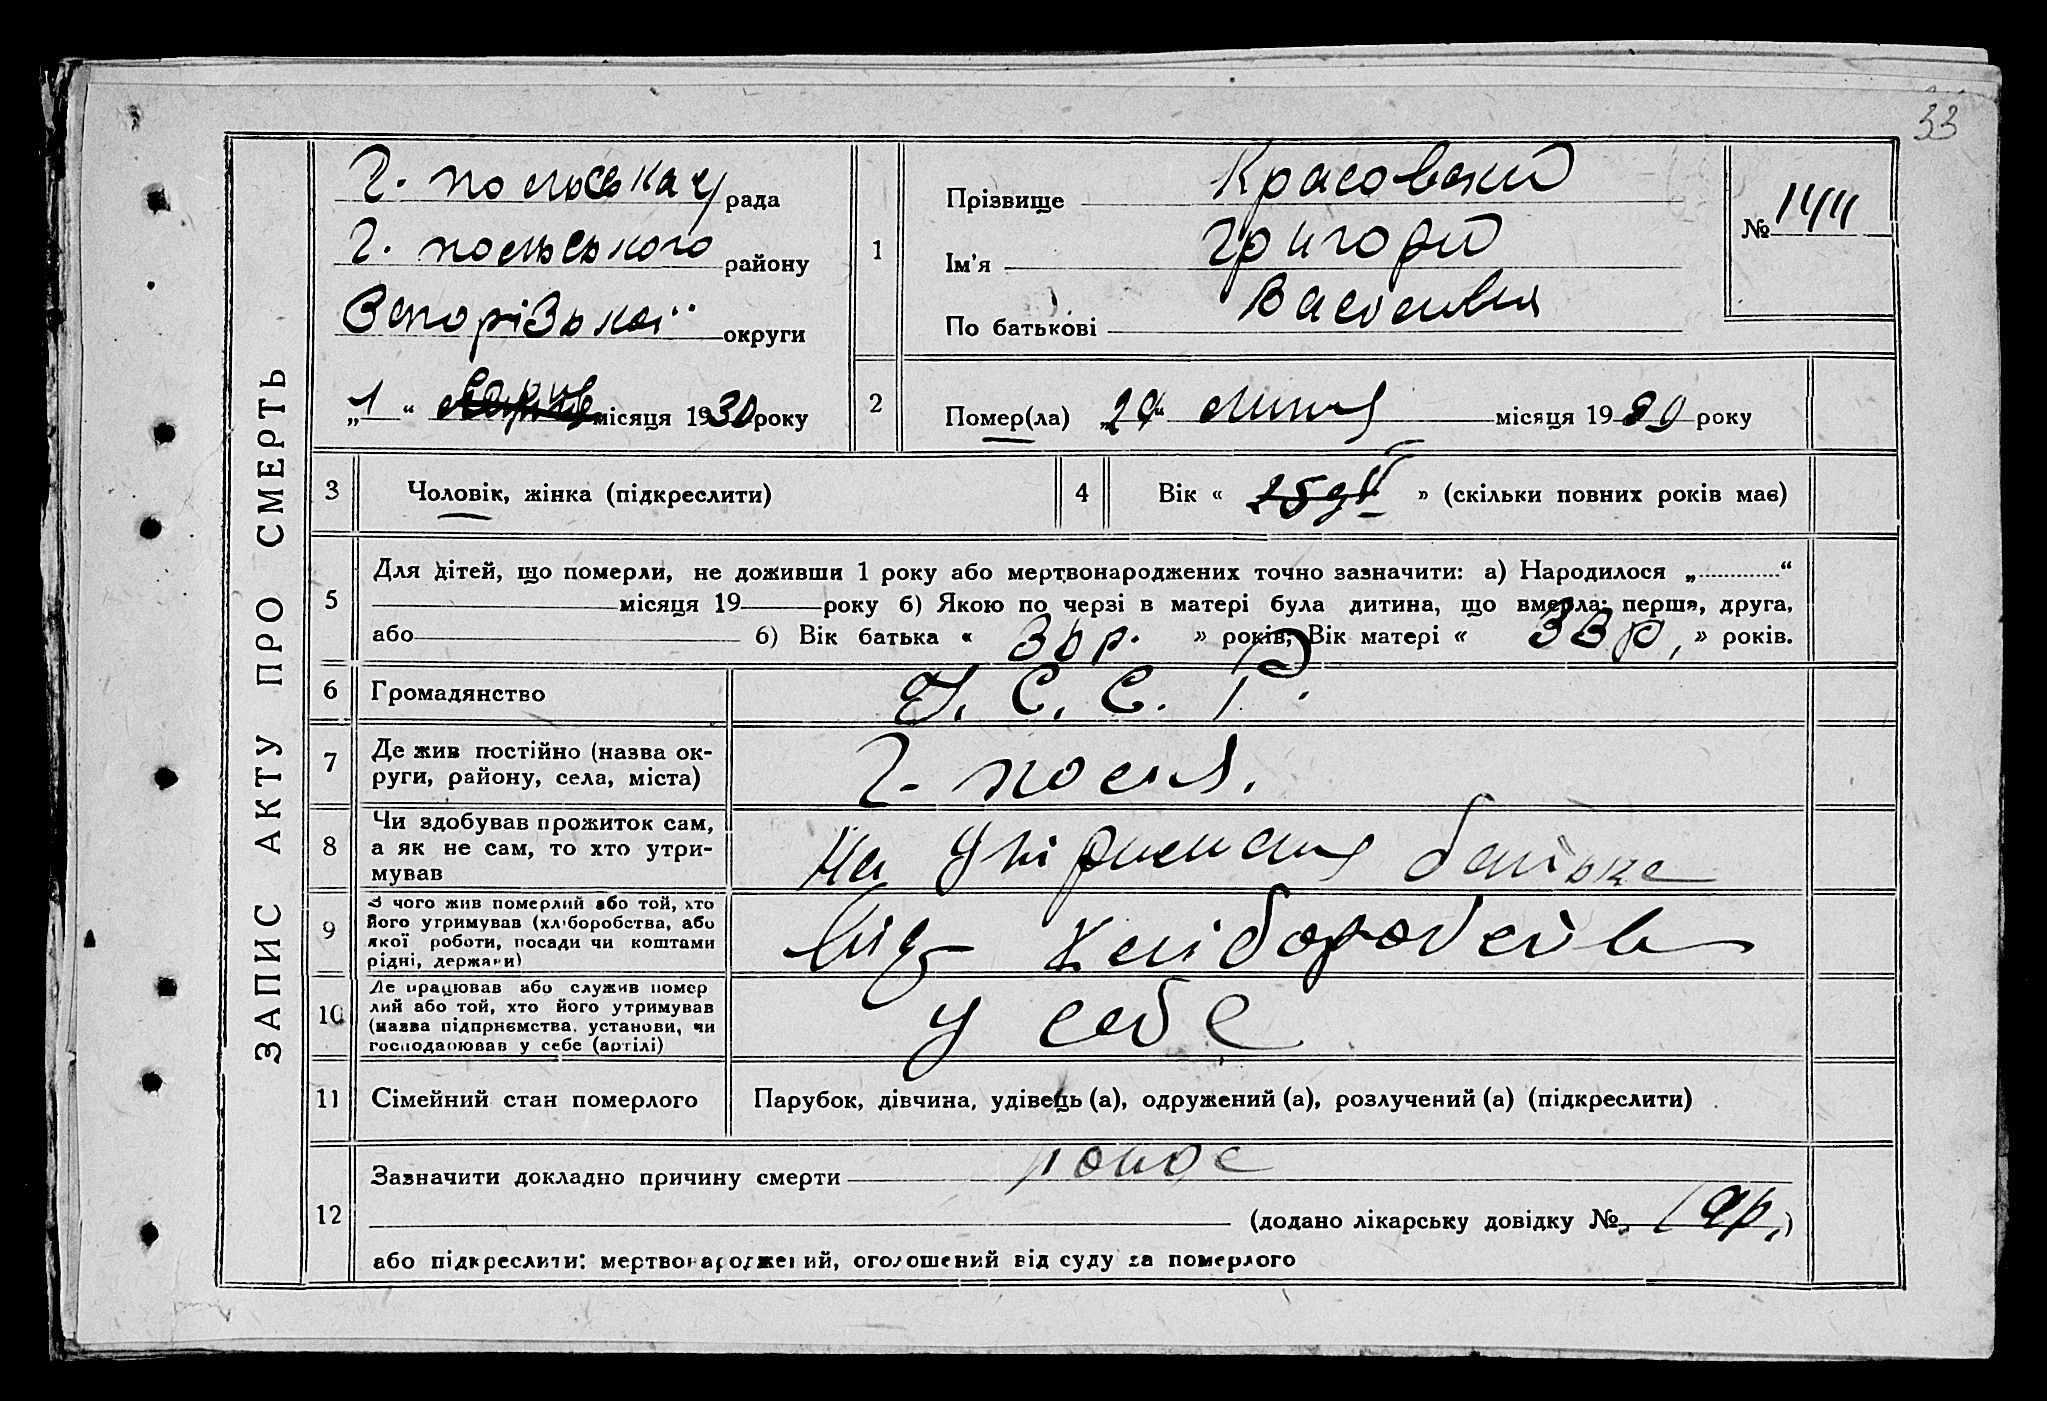 33
ЗАПИС АКТУ ПРО СМЕРТЬ
Г. польська рада
Г. польського району
Запорізької округи
„1“ місяця 1930 року
1
Прізвище Красовский
Ім'я Григорій
По батькові
№ 144
2
Помер(ла) „29“ липня місяця 1930 року
3
Чоловік, жінка (підкреслити)
4
Вік « » (скільки повних років має)
5
Для дітей, що померли, не доживши 1 року або мертвонароджених точно зазначити: а) Народилося „............“
місяця 19 року б) Якою по черзі в матері була дитина, що вмерла: перша, друга,
або б) Вік батька « 36 р. » років; Вік матері « 33 р, » років.
6
Громадянство У. С. С. Р.
7
Де жив постійно (назва ок-
руги, району, села, міста)
Г. поля.
8
Чи здобував прожиток сам,
а як не сам, то хто утри-
мував
На утриманя батька
9
З чого жив померлий або той, хто
його утримував (хліборобства, або
якої роботи, посади чи коштами
рідні, держави)
Від
10
Де працював або служив помер
лий або той, хто його утримував
(назва підприємства, установи, чи
господарював у себе (артілі)
у себе
11
Сімейний стан померлого
Парубок, дівчина, удівець (а), одружений (а), розлучений (а) (підкреслити)
12
Зазначити докладно причину смерти
(додано лікарську довідку № )
або підкреслити: мертвонароджений, оголошений від суду за померлого